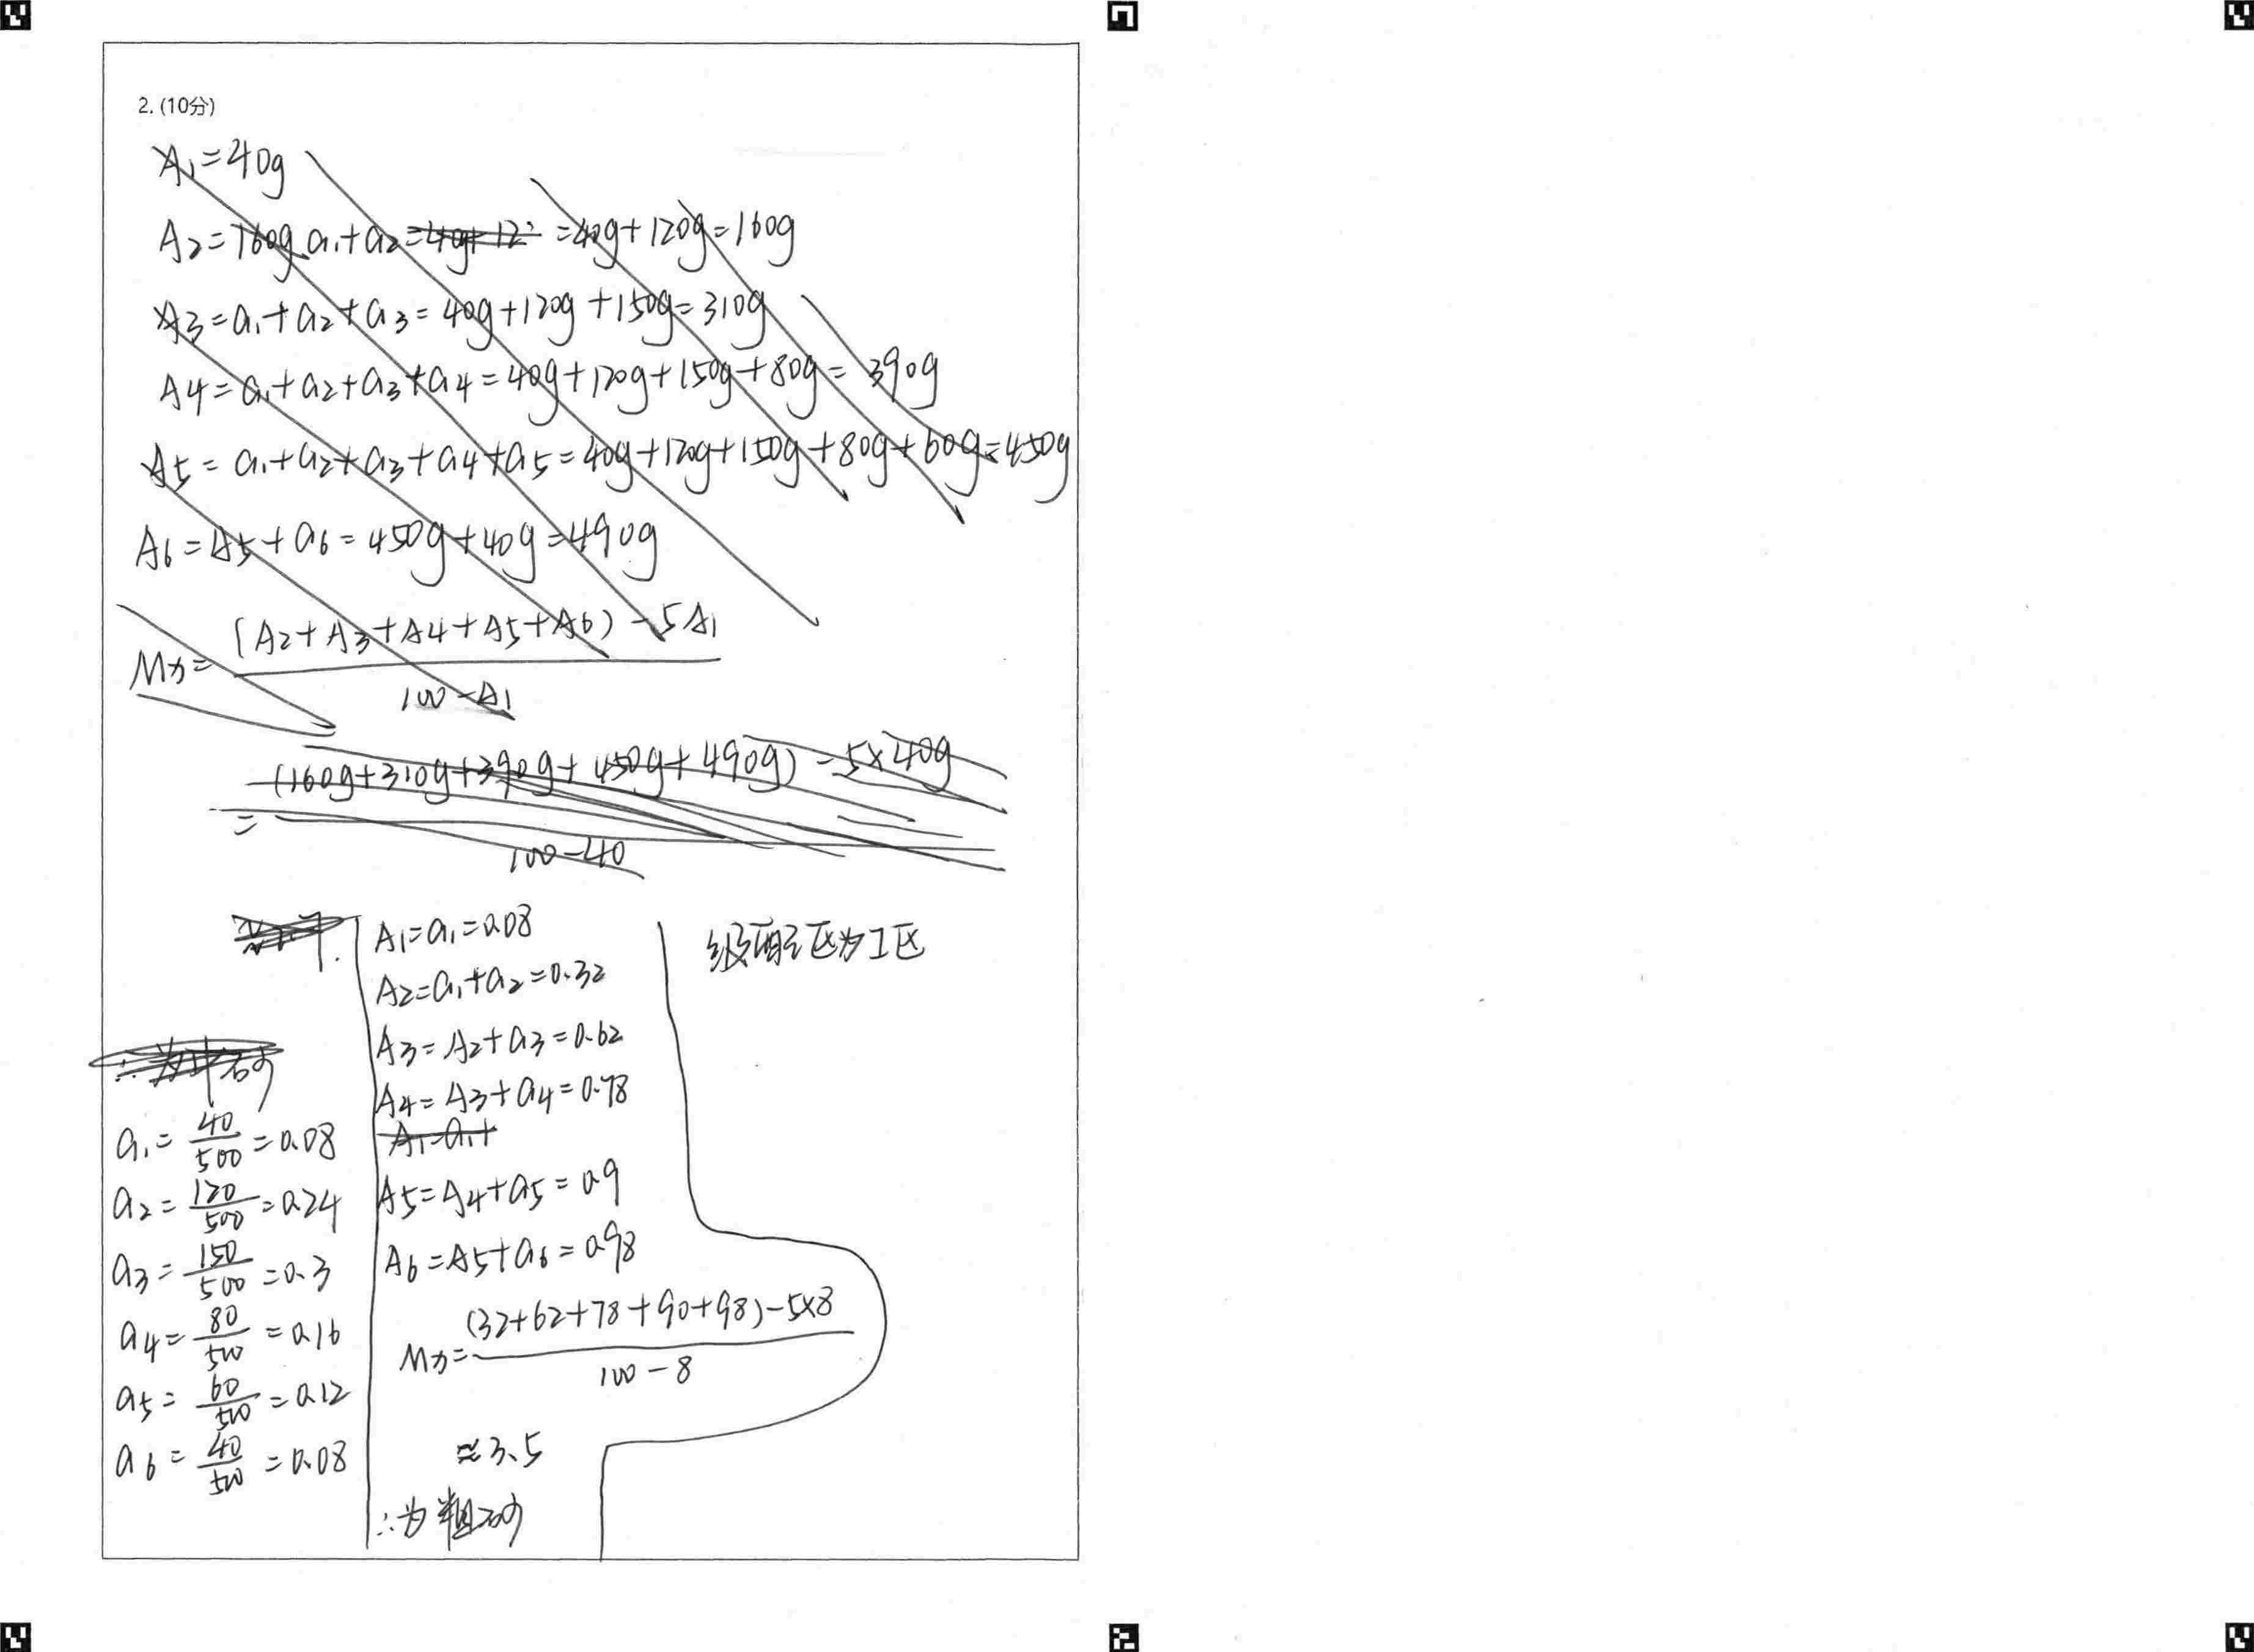 2. (10分)
A₁=40g
A₂=160g a₁+a₂=40g+12 =40g+120g=160g
A₃=a₁+a₂+a₃=40g+120g+150g=310g
A₄=a₁+a₂+a₃+a₄=40g+120g+150g+80g=390g
A₅=a₁+a₂+a₃+a₄+a₅=40g+120g+150g+80g+60g=450g
A₆=A₅+a₆=450g+40g=490g
(A₂+A₃+A₄+A₅+A₆)-5A₁
Mx=
100-A₁
(160g+310g+390g+450g+490g)-5×40g
=
100-40
∴为中砂
a₁=40/500=0.08
a₂=120/500=0.24
a₃=150/500=0.3
a₄=80/500=0.16
a₅=60/500=0.12
a₆=40/500=0.08
A₁=a₁=0.08
A₂=a₁+a₂=0.32
A₃=A₂+a₃=0.62
A₄=A₃+a₄=0.78
A₁=a₁+
A₅=A₄+a₅=0.9
A₆=A₅+a₆=0.98
(32+62+78+90+98)-5×8
Mx=
100-8
≈3.5
∴为粗砂
级配区为I区